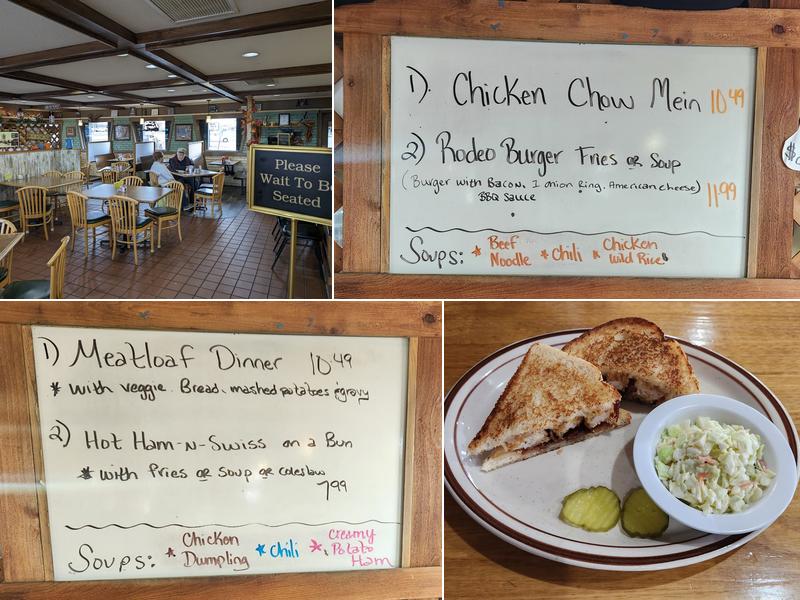 Please
Wait To Be
Seated
1) Chicken Chow Mein 10 49
2) Rodeo Burger Fries or Soup
(Burger with Bacon, 1 onion Ring, American cheese) 11.99
BBQ Sauce
Soups: * Beef Noodle * Chili * Chicken Wild Rice
1) Meatloaf Dinner 10 49
* with veggie, Bread, mashed potatoes & gravy
2) Hot Ham-N-Swiss on a Bun
* with fries or soup or coleslaw
7 99
Soups: * Chicken Dumpling * Chili * Creamy Potato Ham